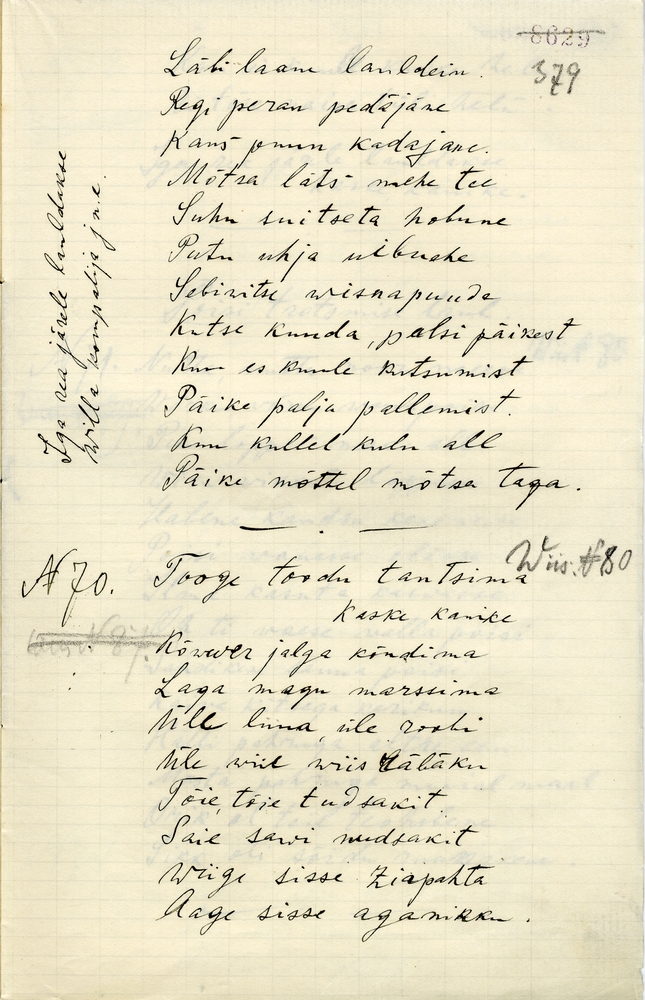 8629
379
Läbi laane lauldein.
Regi peran pedäjäne
Kaus puun kadajane.
Mõtsa läts mehe tee
Suhu suitseta hobune
Putu uhja uibuehe
Sebiwitse wisnapuude
Kutse kuuda, palsi päikest
Kuu es kuule kutsumist
Päike palja pallemist.
Kuu kullel kulu all
Päike mõttel mõtsa taga.
Iga rea järele lauldakse
willa kompalija j.n.e.
N 70.
Wiis. N 80
Tooge toodu tantsima
Kaske kanike
Kõwwer jalga kõndima
Laga magu marssima
Ülle liina, üle roobi
Üle wiie wiis
Tõie, tõie tudsakit
Saie sawi nudsakit
Wiige sisse ziapahta
Aage sisse aganikku.